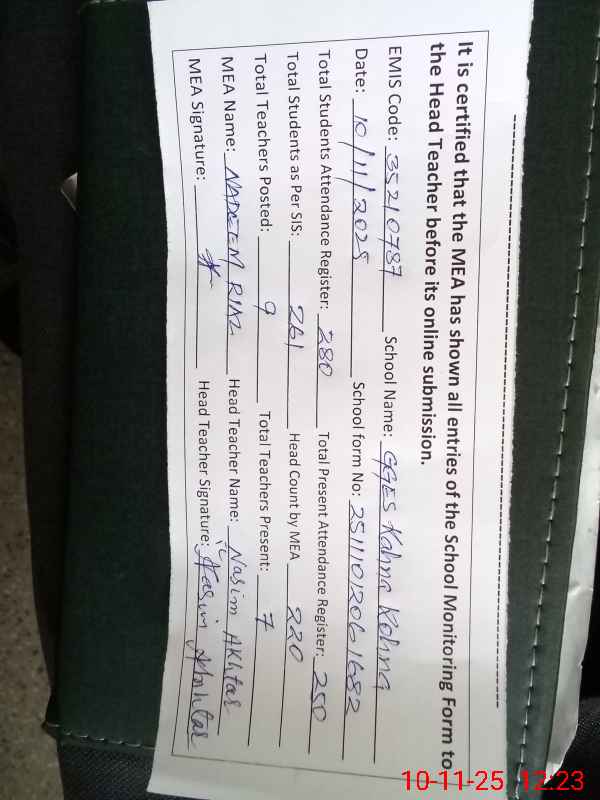 It is certified that the MEA has shown all entries of the School Monitoring Form to
the Head Teacher before its online submission.
EMIS Code: 35210787 School Name: GGES Kahna Kohna
Date: 10/11/2025 School form No: 25111012061682
Total Students Attendance Register: 280 Total Present Attendance Register: 250
Total Students as Per SIS: 261 Head Count by MEA 220
Total Teachers Posted: 9 Total Teachers Present: 7
MEA Name: NADEEM RIAZ Head Teacher Name: Nasim Akhtar
MEA Signature: Head Teacher Signature: Nasim Akhtar
10-11-25 12:23